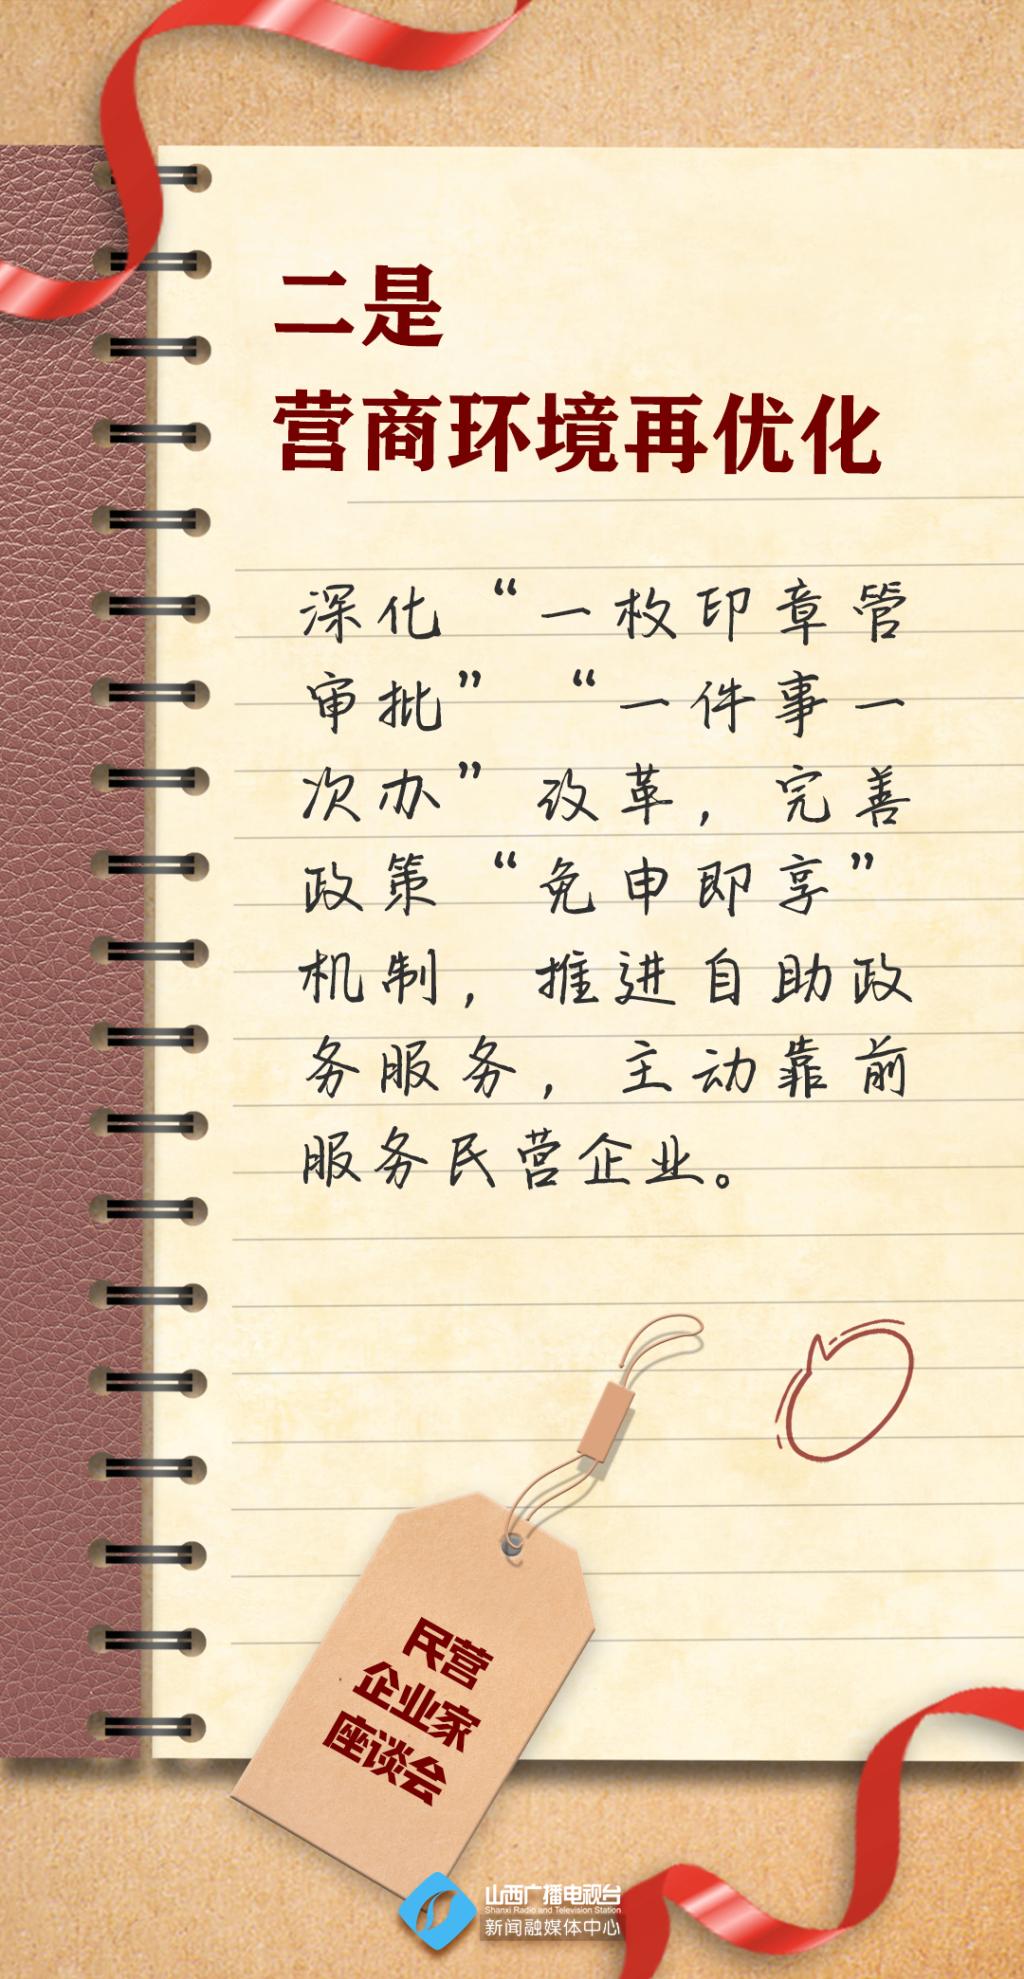 二是
营商环境再优化
深化“一枚印章管
审批”“一件事一
次办”改革，完善
政策“免申即享”
机制，推进自助政
务服务，主动靠前
服务民营企业。
民营
企业家
座谈会
山西广播电视台
Shanxi Radio and Television Station
新闻融媒体中心